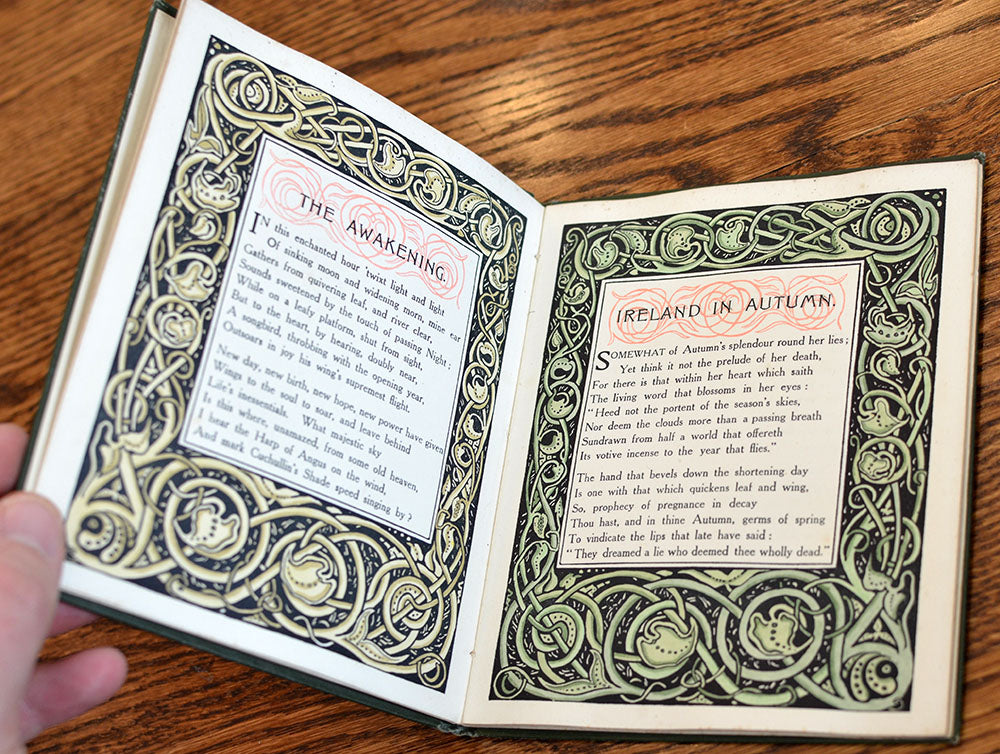 THE AWAKENING.
IN this enchanted hour 'twixt light and light
Of sinking moon and widening morn, mine ear
Gathers from quivering leaf, and river clear,
Sounds sweetened by the touch of passing Night;
While on a leafy platform, shut from sight,
But to the heart, by hearing, doubly near,
A songbird, throbbing with the opening year,
Outsoars in joy his wing's supremest flight.
New day, new birth, new hope, new power have given
Wings to the soul to soar, and leave behind
Life's inessentials. What majestic sky
Is this where, unamazed, from some old heaven,
I hear the Harp of Angus on the wind,
And mark Cuchullin's Shade speed singing by?
IRELAND IN AUTUMN.
SOMEWHAT of Autumn's splendour round her lies;
Yet think it not the prelude of her death,
For there is that within her heart which saith
The living word that blossoms in her eyes:
"Heed not the portent of the season's skies,
Nor deem the clouds more than a passing breath
Sundrawn from half a world that offereth
Its votive incense to the year that flies."
The hand that bevels down the shortening day
Is one with that which quickens leaf and wing,
So, prophecy of pregnance in decay
Thou hast, and in thine Autumn, germs of spring
To vindicate the lips that late have said:
"They dreamed a lie who deemed thee wholly dead."